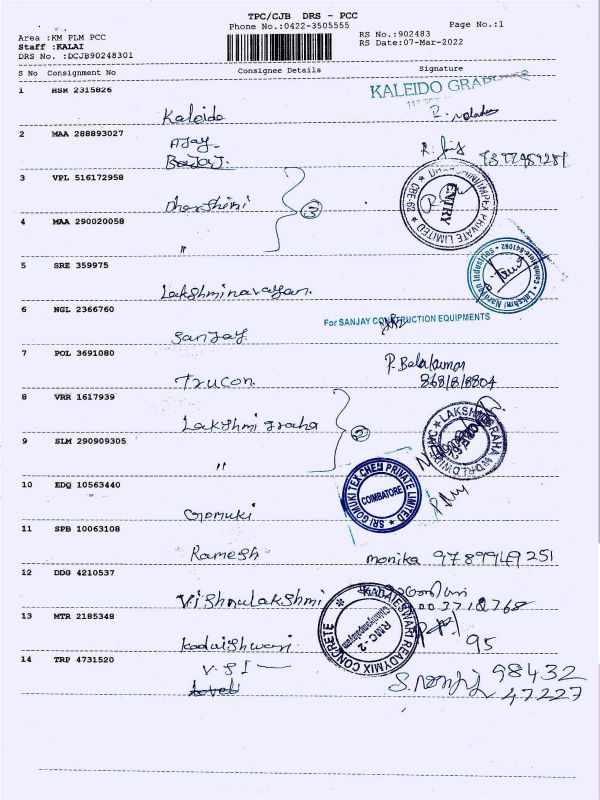 TPC/CJB DRS - PCC
Phone No.:0422-3505555
Page No.:1
Area :KM PLM PCC
Staff :KALAI
DRS No. :DCJB90248301
RS No.:902483
RS Date:07-Mar-2022
S No Consignment No Consignee Details Signature
1 HSR 2315826
KALEIDO
Kaleido
2 MAA 288893027
Ajay
Bajaj.
3 VPL 516172958
Dharshini
②
CBE-62 ENTRY PRIVATE LIMITED
4 MAA 290020058
"
5 SRE 359975
Lakshminarayan.
Lakshmi Narayan Industries
6 NGL 2366760
For SANJAY CONSTRUCTION EQUIPMENTS
Sanjay.
7 POL 3691080
P. Balakumar
Trucon.
868/8/8804
8 VRR 1617939
Lakshmi graha
②
LAKSHMI GRAHA WORLDWIDE INC
9 SLM 290909305
"
SRI GOMUKI TEX CHEM PRIVATE LIMITED
COIMBATORE
10 EDQ 10563440
Gomuki
11 SPB 10063108
Ramesh
monika 9789949251
12 DDG 4210537
Vishnulakshmi
13 MTR 2185348
KADAIESWARI READYMIX CONCRETE
RMC-2
Chinniyampalayam
Kadaishwari.
95
14 TRP 4731520
V.S I
98432
47227